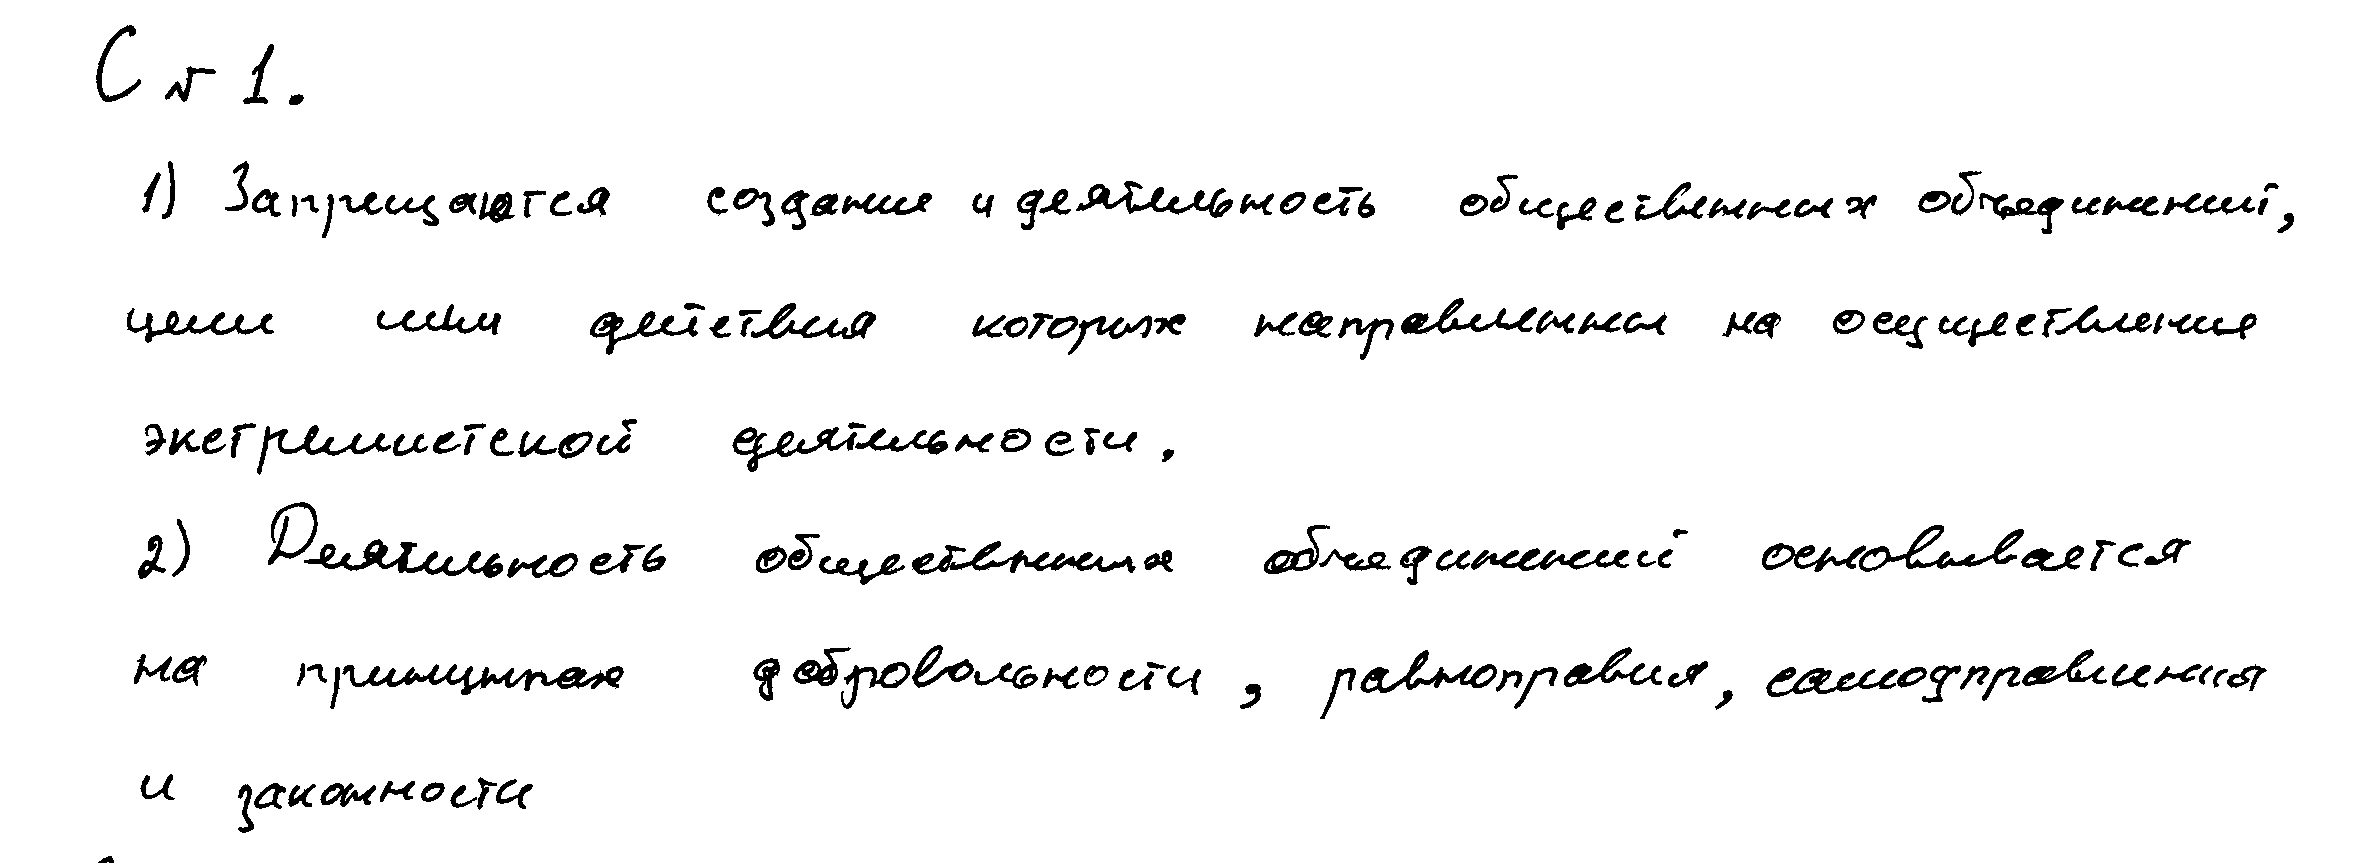 С №1.
1) Запрещаются создание и деятельность общественных объединений,
цели или действия которых направлены на осуществление
экстремистской деятельности.
2) Деятельность общественных объединений основывается
на принципах добровольности, равноправия, самоуправления
и законности